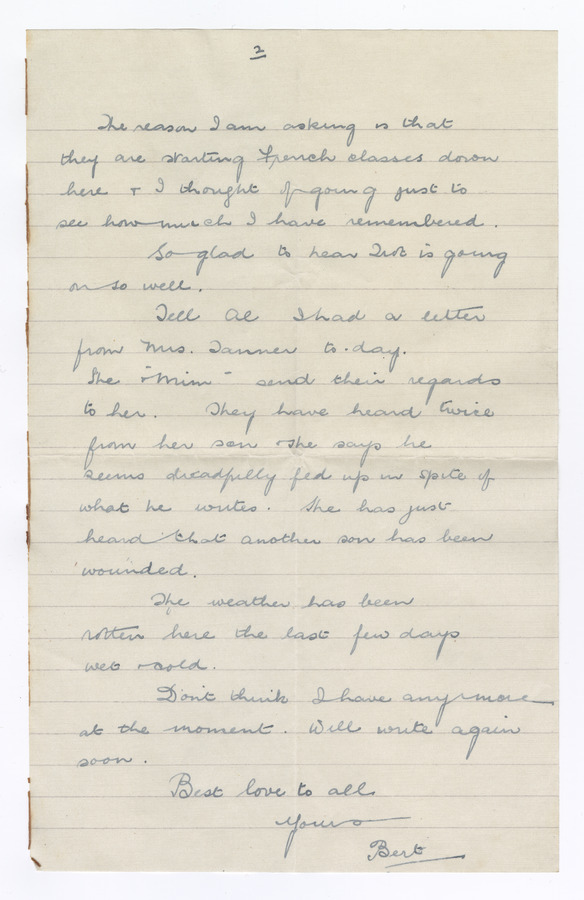 2
The reason I am asking is that
they are starting French classes down
here + I thought of going just to
see how much I have remembered.
So glad to hear Trot is going
on so well.
Tell Al I had a letter
from Mrs. Tanner to-day.
She + "Mim" send their regards
to her. They have heard twice
from her son + she says he
seems dreadfully fed up in spite of
what he writes. She has just
heard that another son has been
wounded.
The weather has been
rotten here the last few days
wet + cold.
Don't think I have any more
at the moment. Will write again
soon.
Best love to all
Yours
Bert